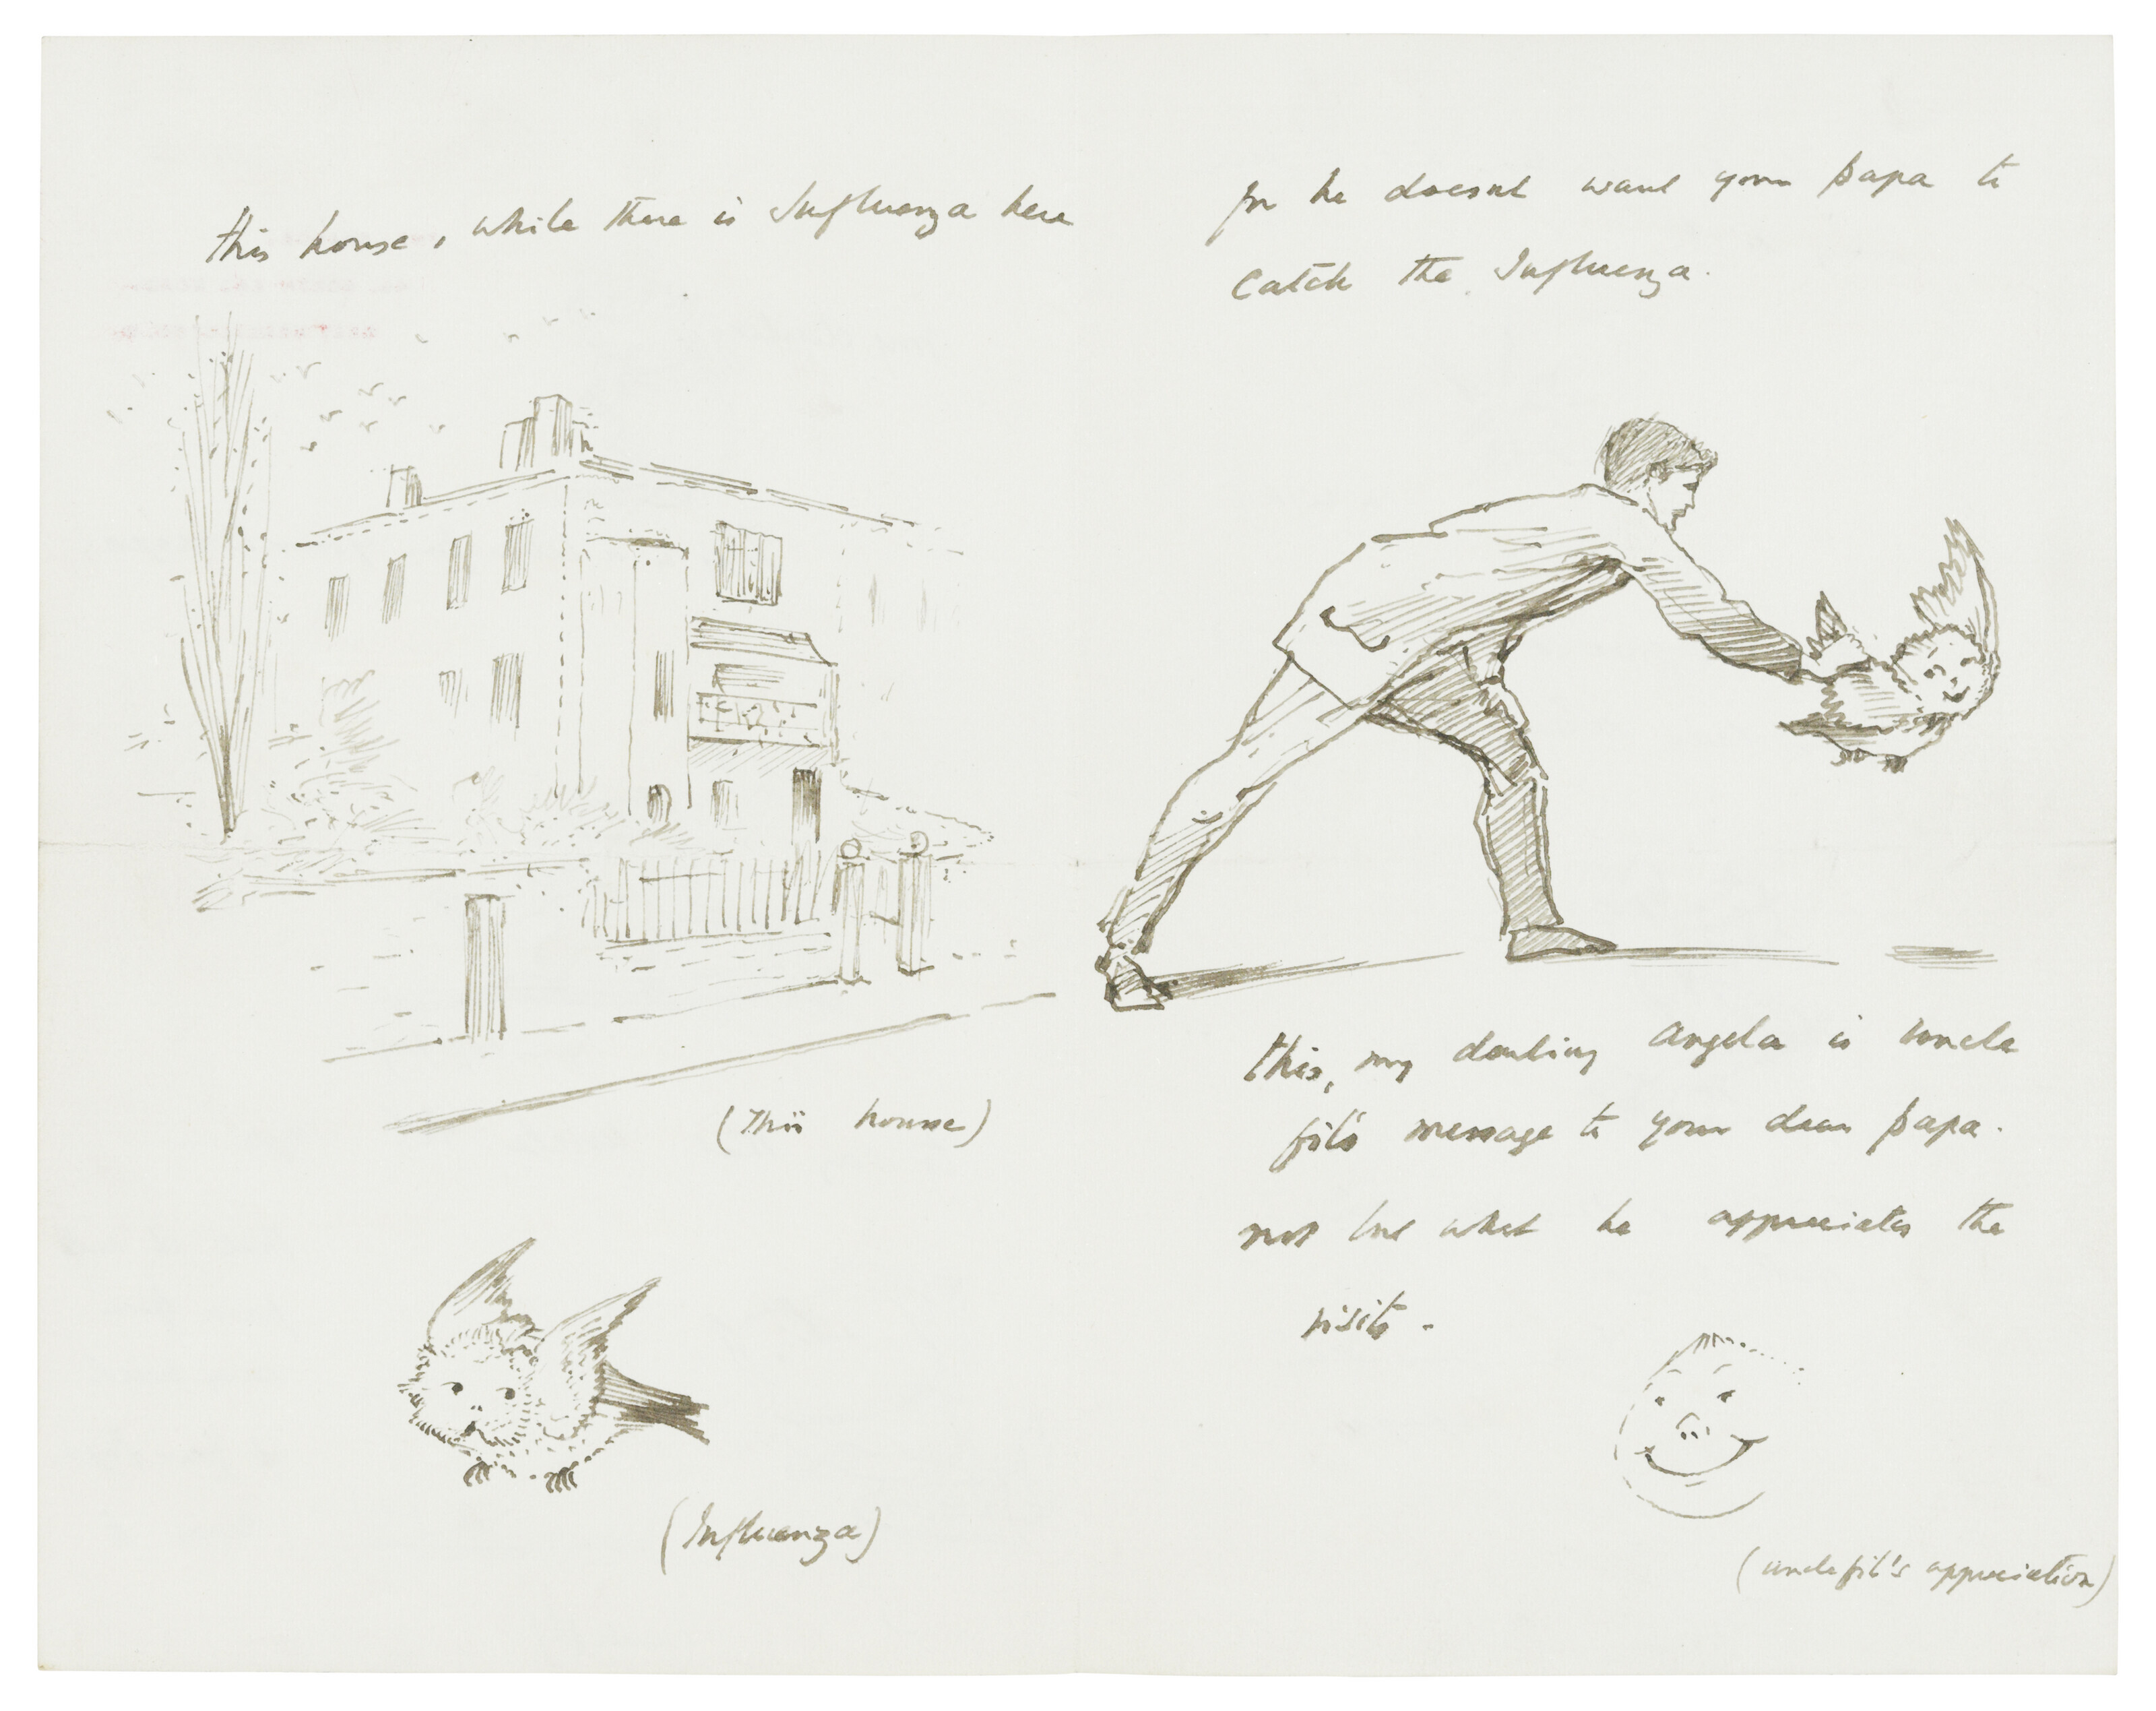 this house, while there is Influenza here
(This house)
(Influenza)
for he doesnt want your papa to
Catch the Influenza.
this, my darling Angela is uncle
fil's message to your dear papa.
not but what he appreciates the
visits -
(uncle fil's appreciation)